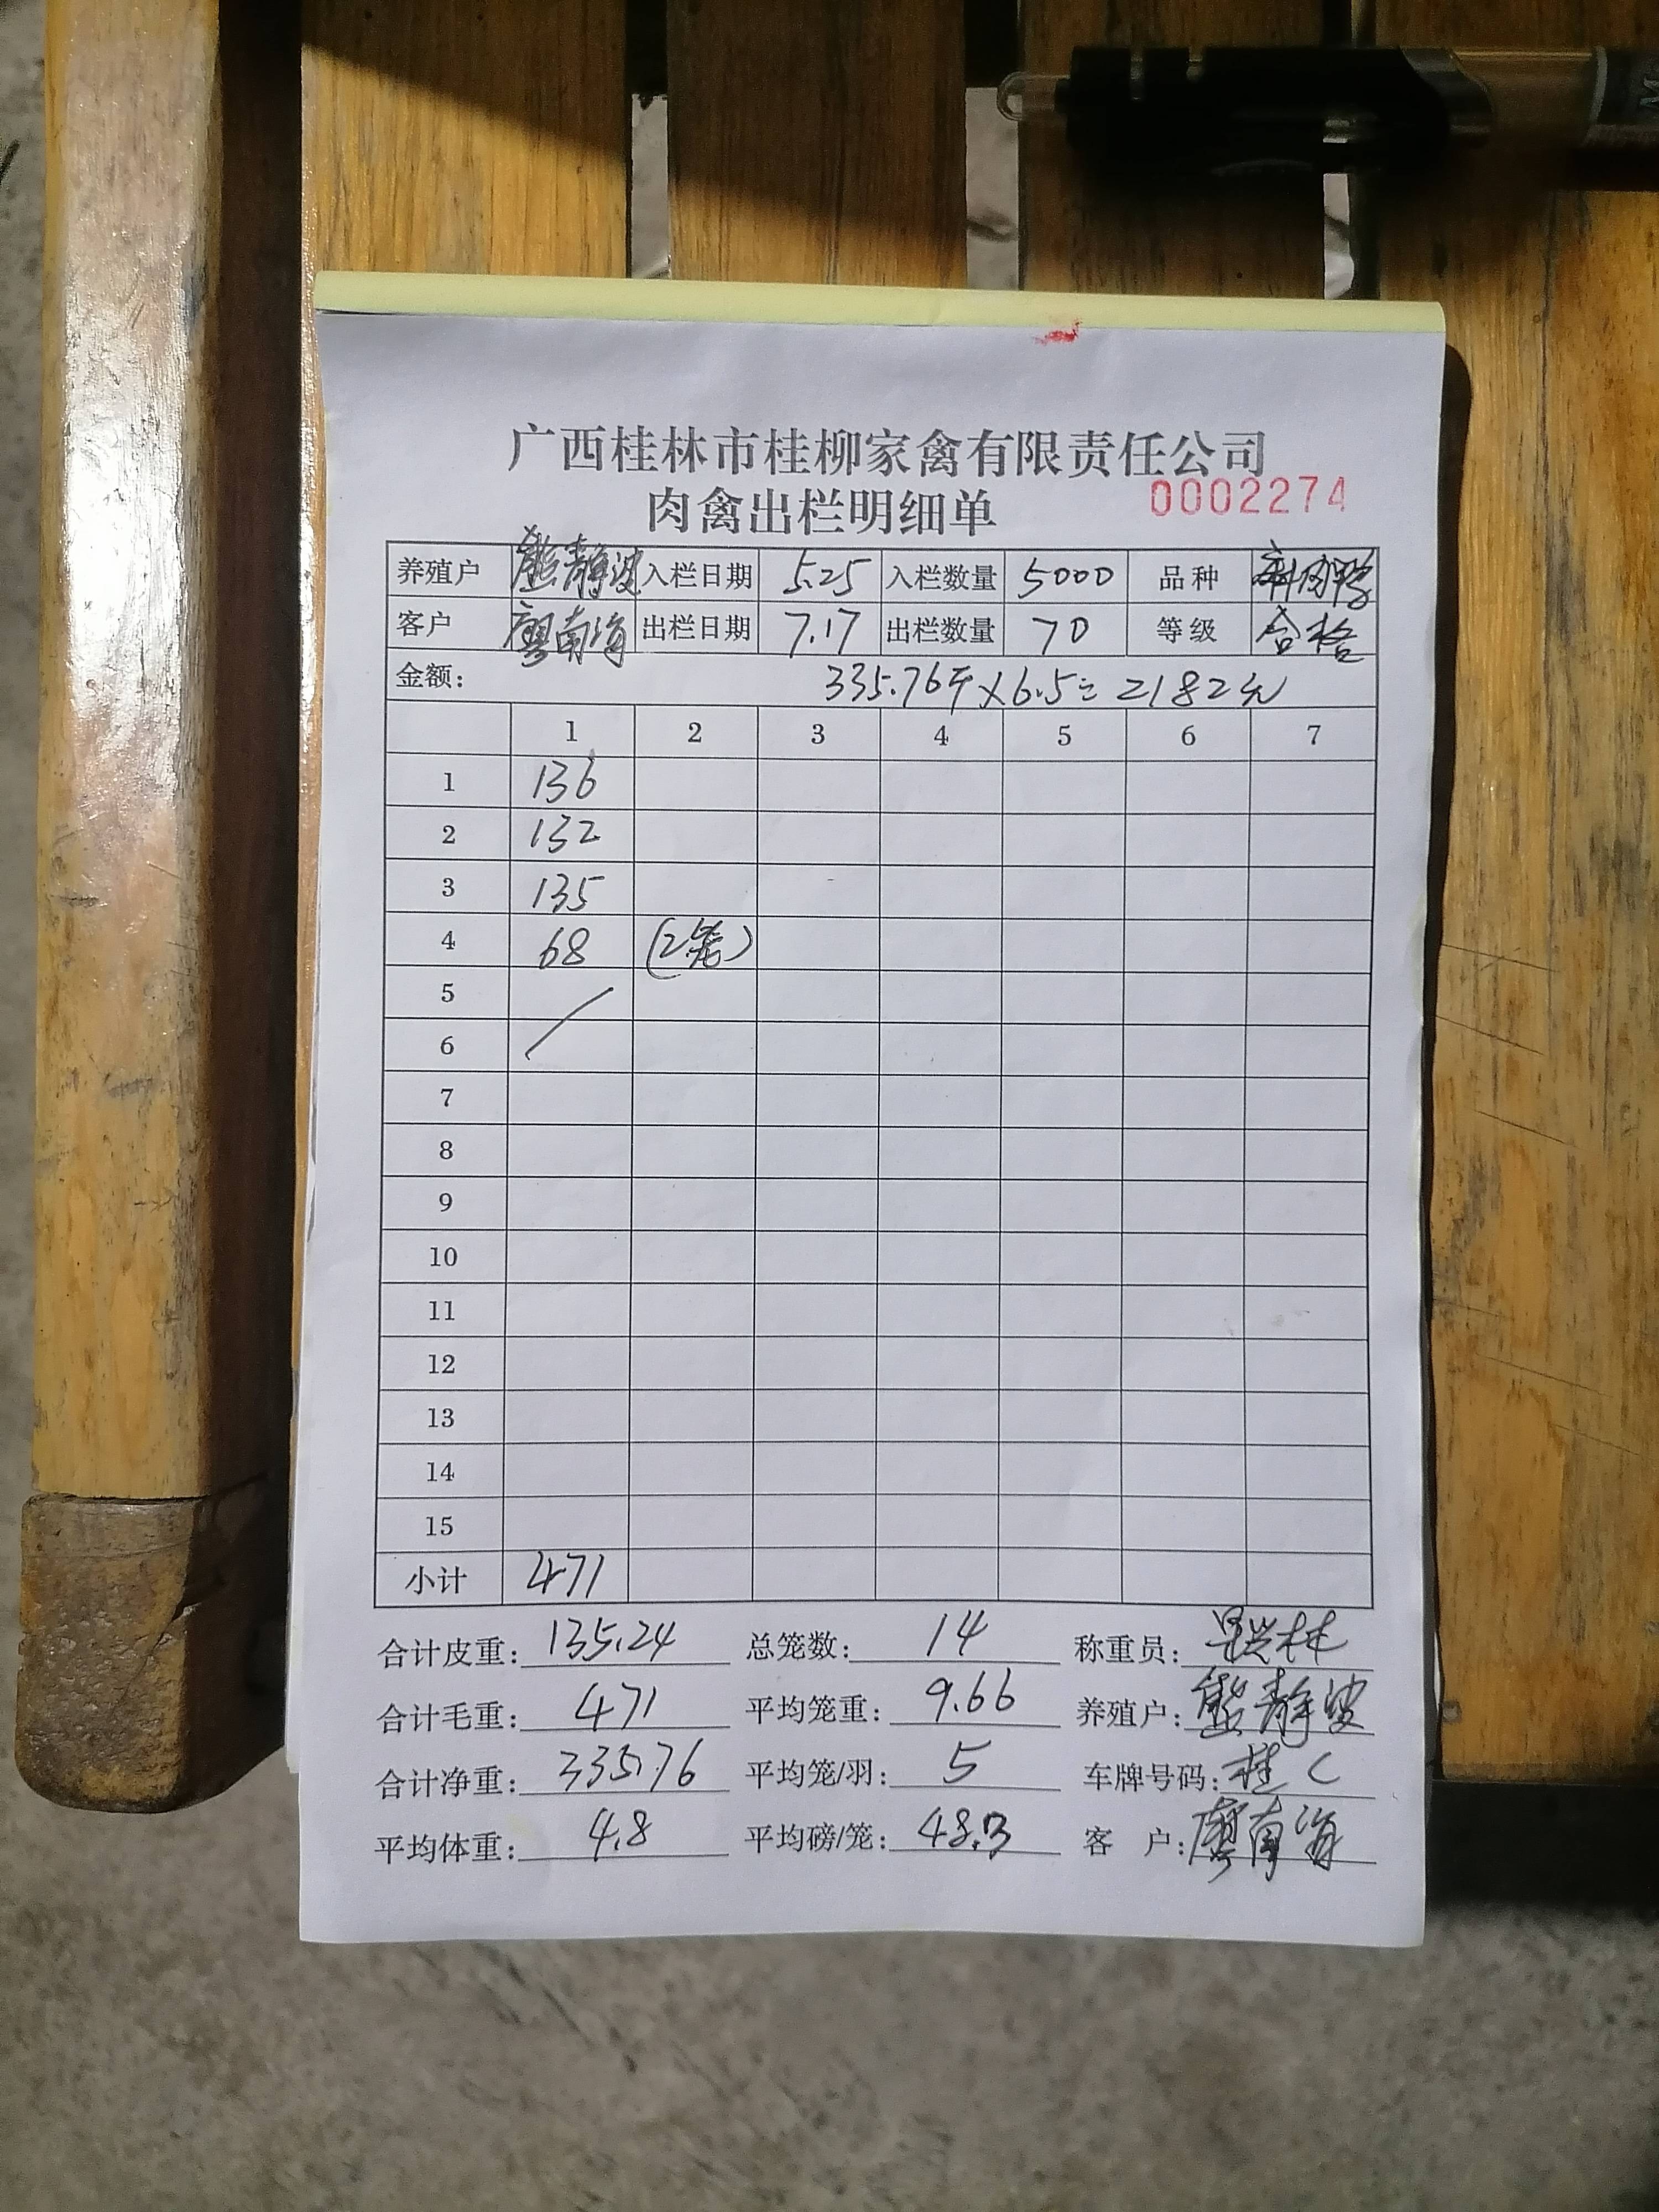 广西桂林市桂柳家禽有限责任公司
肉禽出栏明细单 0002274
养殖户 熊静波 入栏日期 5.25 入栏数量 5000 品种 肉鸭
客户 廖南海 出栏日期 7.17 出栏数量 70 等级 合格
金额: 335.76斤×6.5=2182元
1 2 3 4 5 6 7
1 136
2 132
3 135
4 68 (2笼)
5
6
7
8
9
10
11
12
13
14
15
小计 471
合计皮重: 135.24 总笼数: 14 称重员:
合计毛重: 471 平均笼重: 9.66 养殖户: 熊静波
合计净重: 335.76 平均笼/羽: 5 车牌号码: 桂C
平均体重: 4.8 平均磅/笼: 48.3 客户: 廖南海